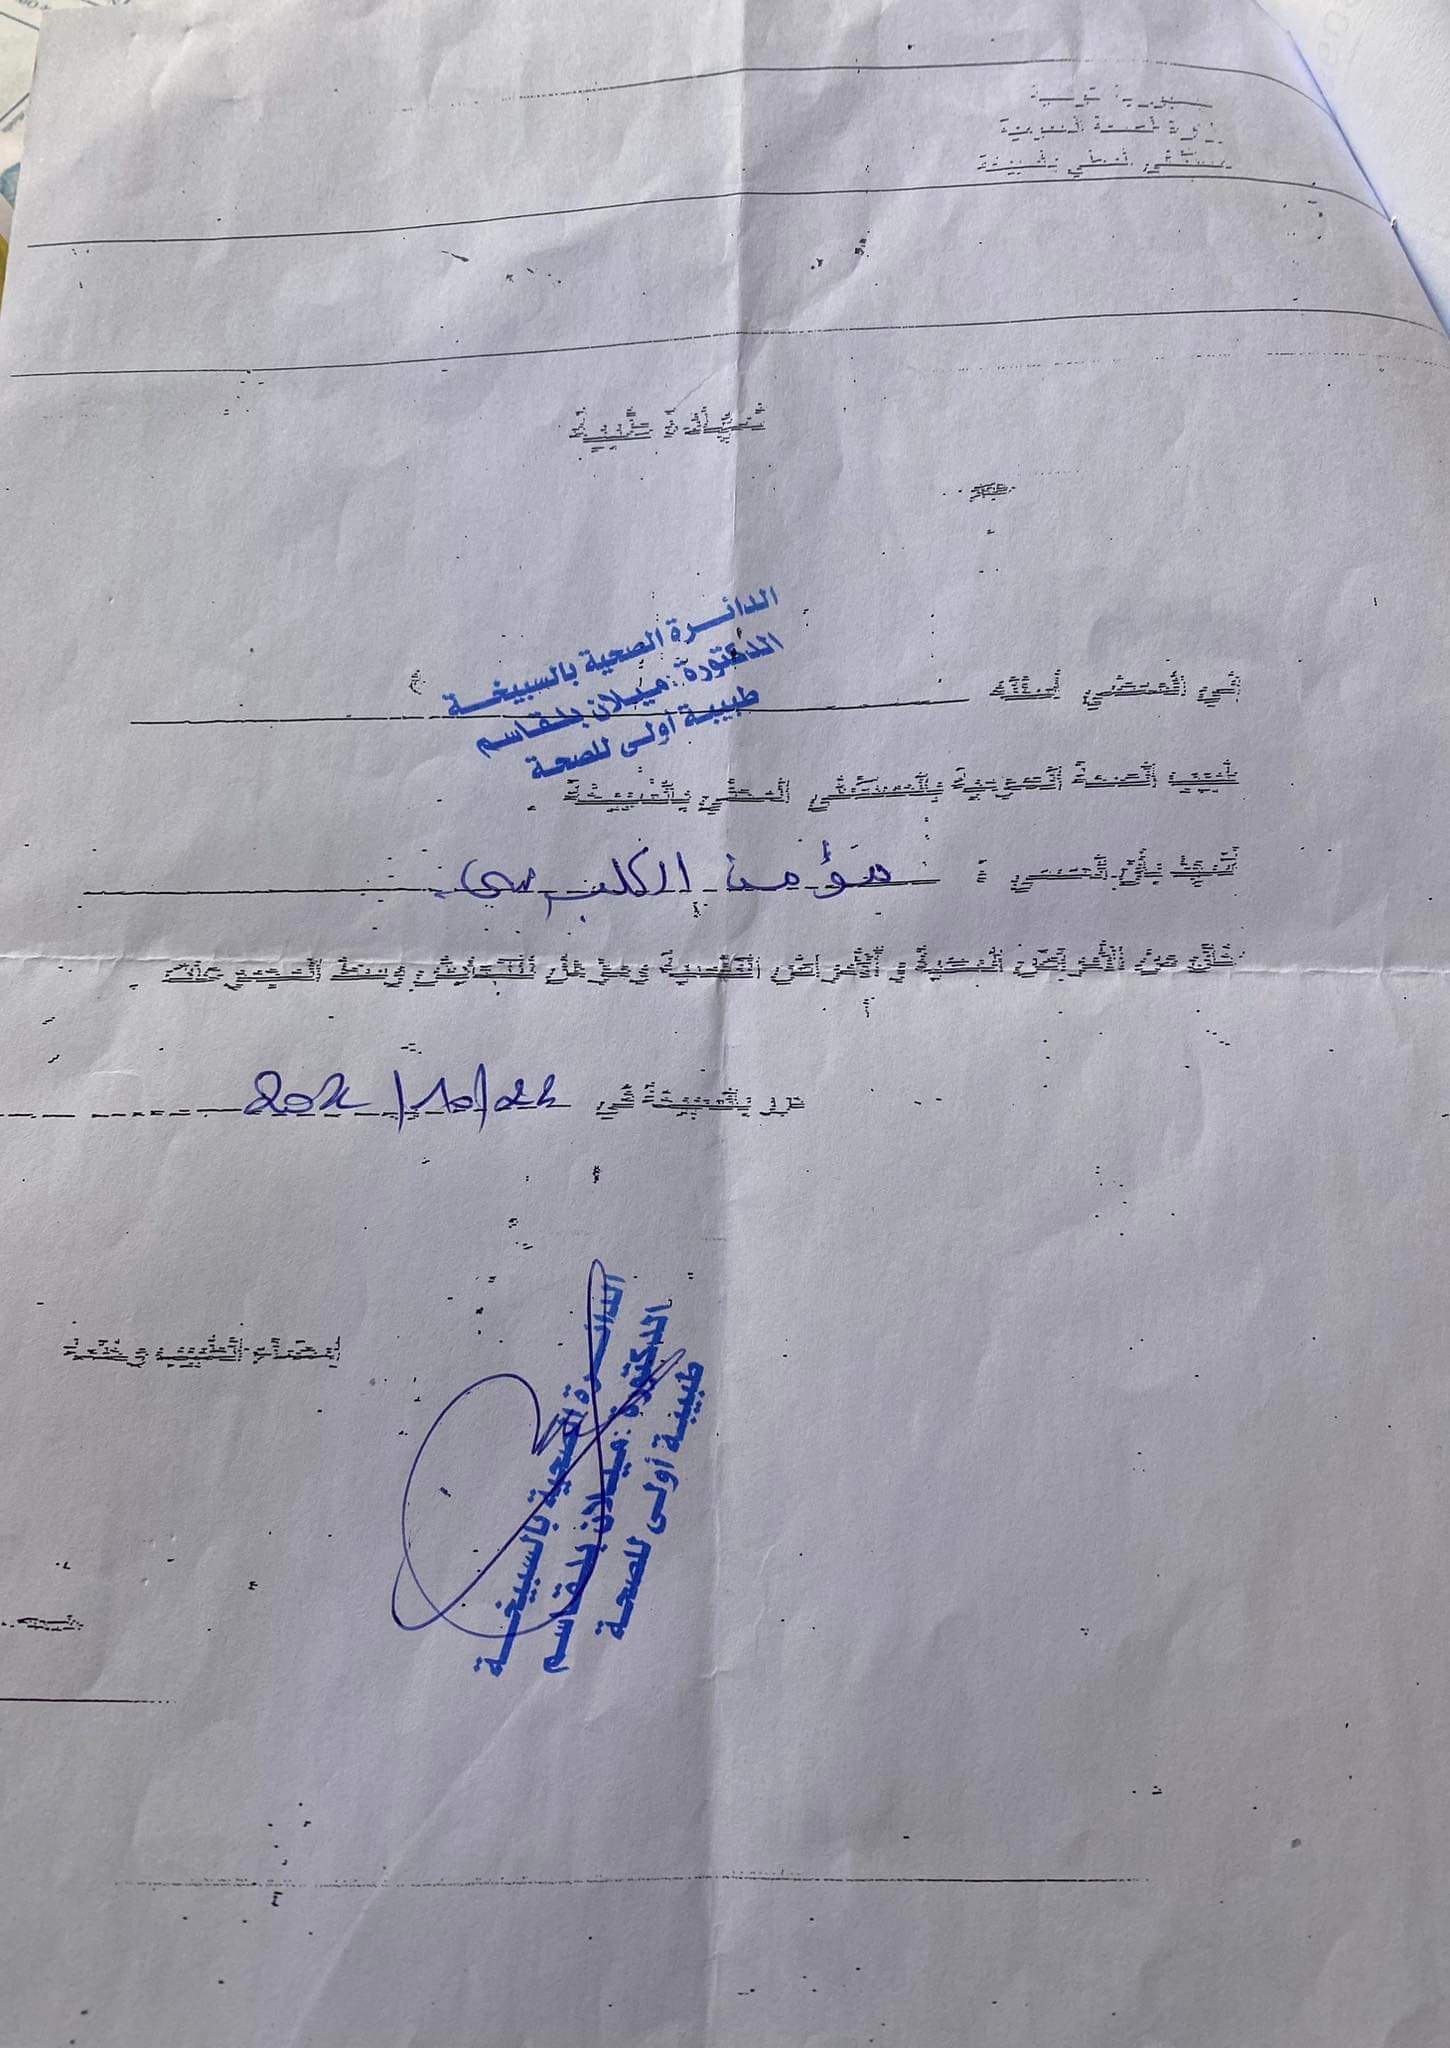 الجمهورية التونسية
وزارة الصحة العمومية
المستشفى المحلي بالسبيخة
شهادة طبية
الدائرة الصحية بالسبيخة
الدكتورة : ميلان بلقاسم
طبيبة أولى للصحة
إني الممضي أسفله
طبيب الصحة العمومية بالمستشفى المحلي بالسبيخة .
أشهد بأن المسمى : مؤمن الكلبوسي
خال من الأمراض المعدية و الأمراض النفسية ومؤهل للتعايش وسط المجموعات .
حرر بالسبيخة في
إمضاء الطبيب وختمه
الدائرة الصحية بالسبيخة
الدكتورة : ميلان بلقاسم
طبيبة أولى للصحة